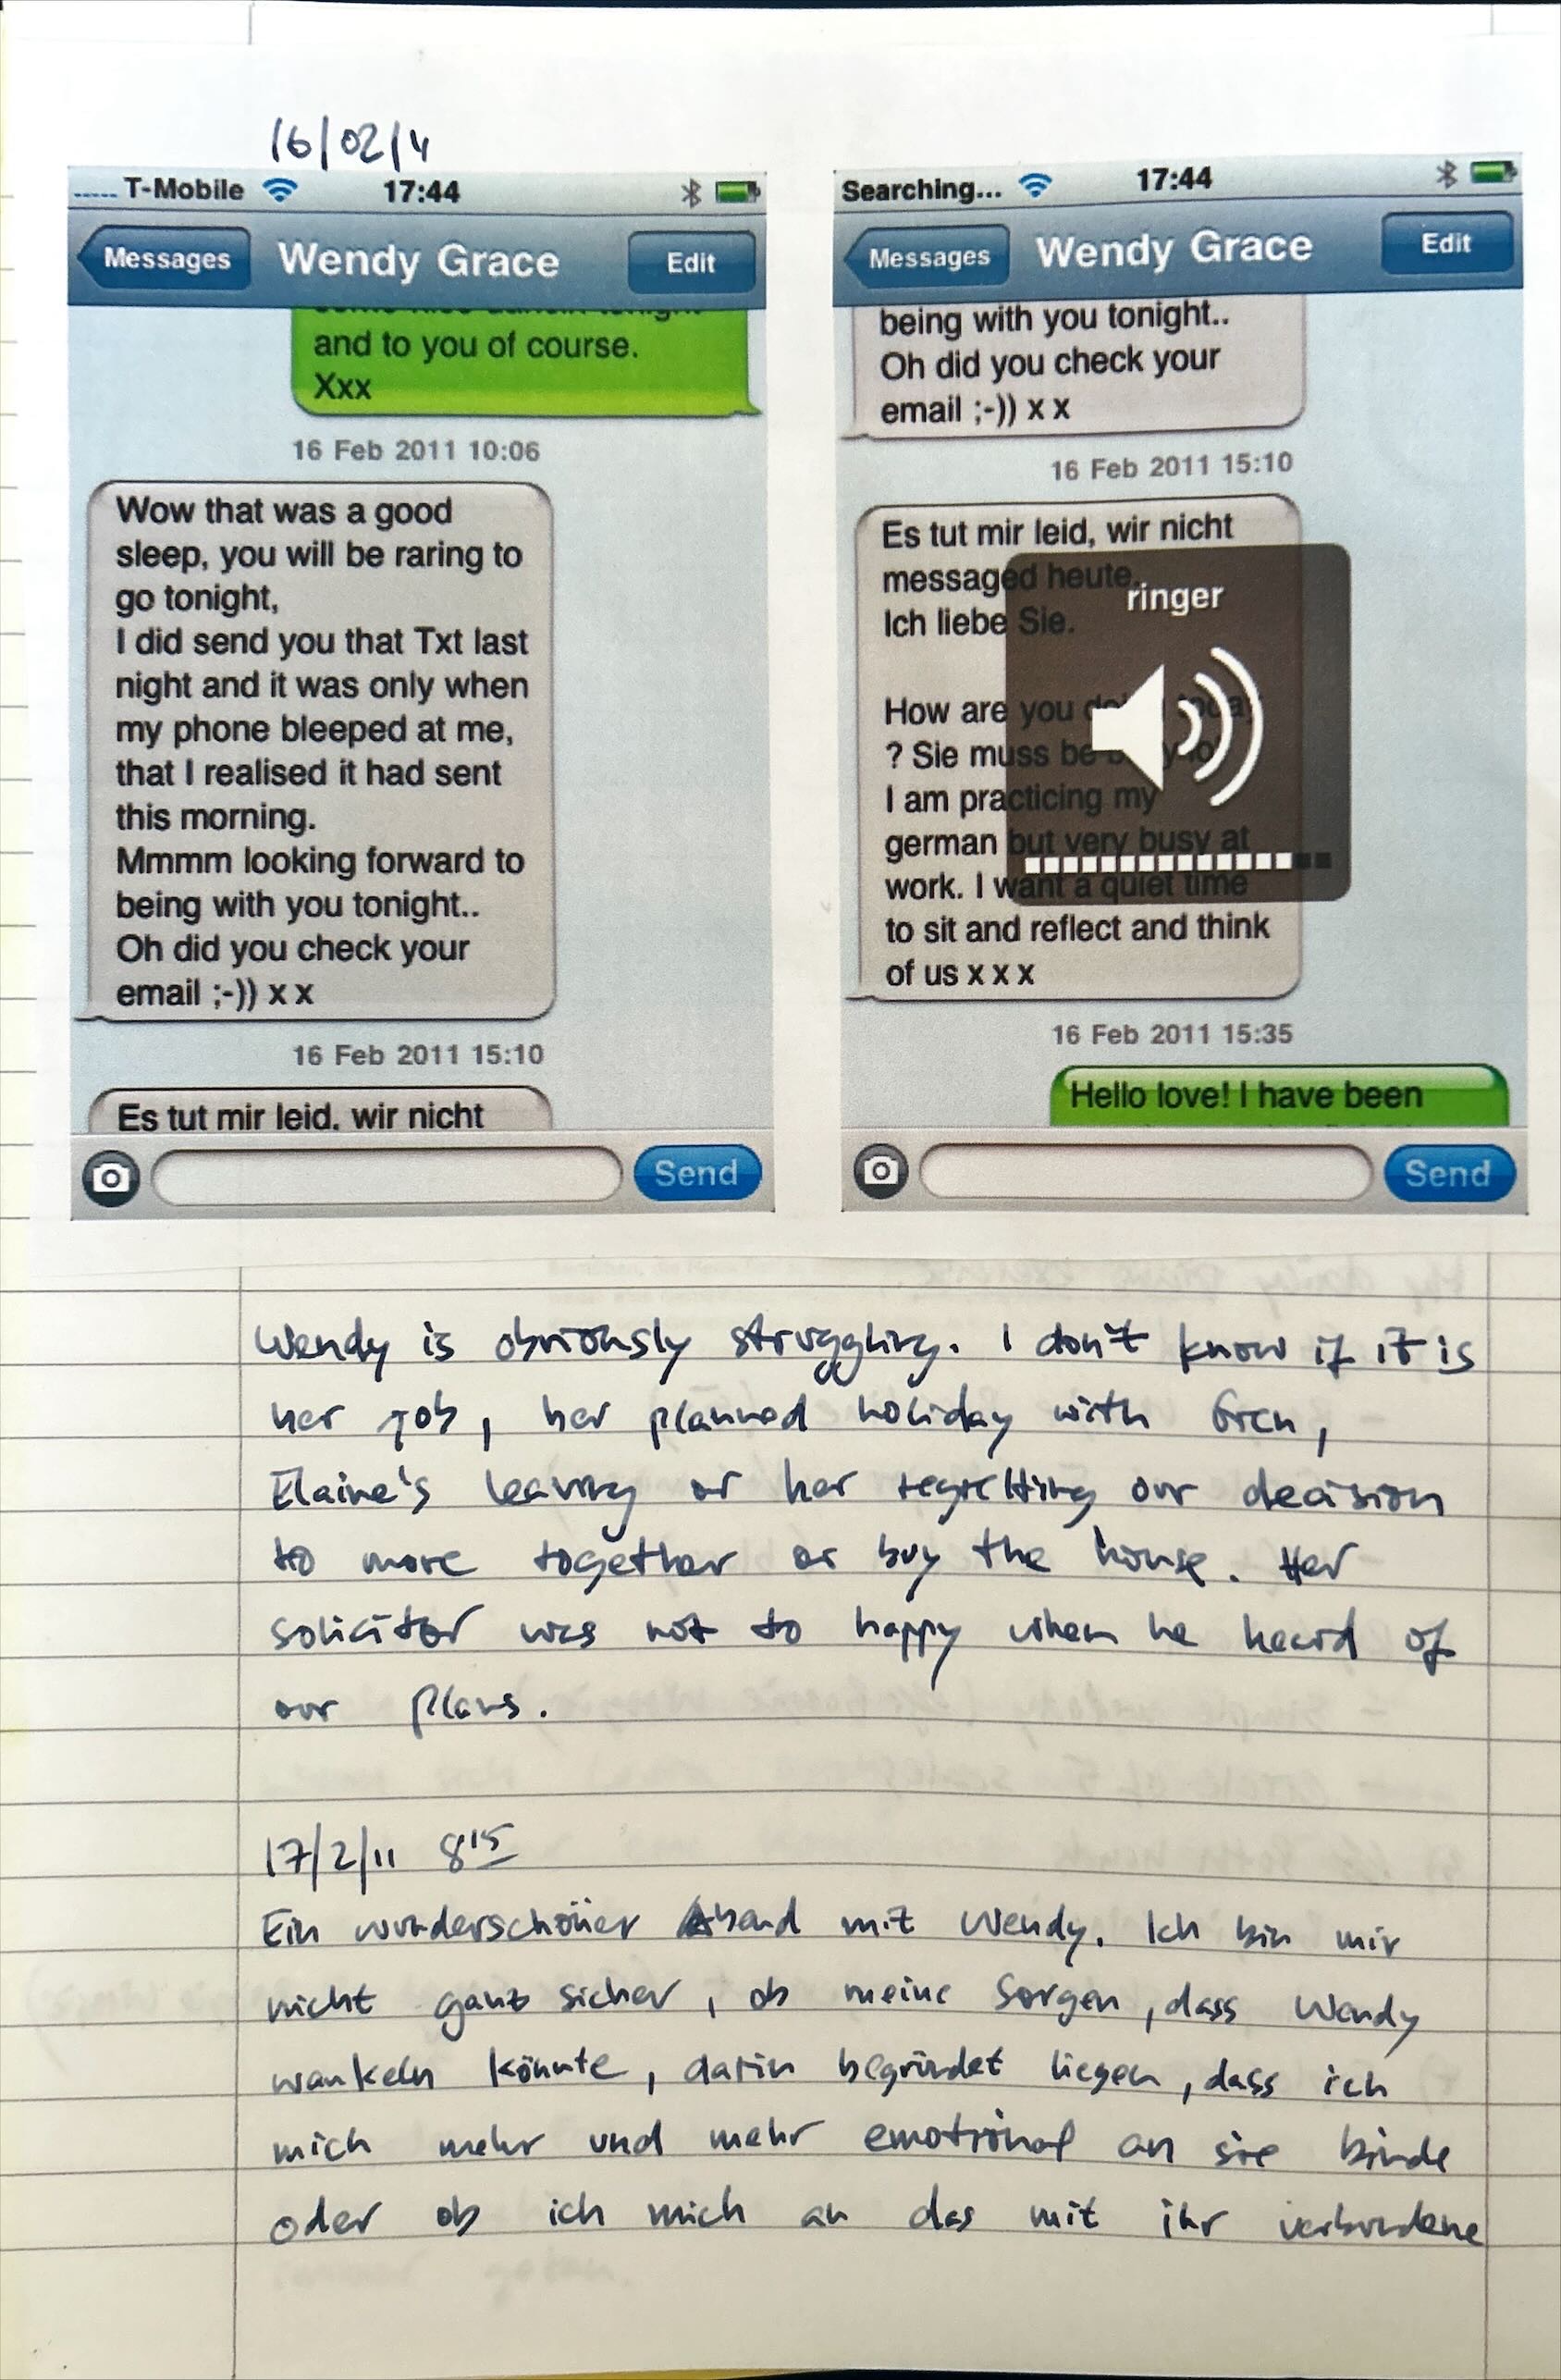 16/02/11
T-Mobile 17:44
Messages Wendy Grace Edit
and to you of course.
Xxx
16 Feb 2011 10:06
Wow that was a good
sleep, you will be raring to
go tonight,
I did send you that Txt last
night and it was only when
my phone bleeped at me,
that I realised it had sent
this morning.
Mmmm looking forward to
being with you tonight..
Oh did you check your
email ;-)) x x
16 Feb 2011 15:10
Es tut mir leid, wir nicht
Send
Searching... 17:44
Messages Wendy Grace Edit
being with you tonight..
Oh did you check your
email ;-)) x x
16 Feb 2011 15:10
Es tut mir leid, wir nicht
messaged heute.
ringer
Ich liebe Sie.
How are you
? Sie muss be
I am practicing my
german but very busy at
work. I want a quiet time
to sit and reflect and think
of us x x x
16 Feb 2011 15:35
Hello love! I have been
Send
Wendy is obviously struggling. I don't know if it is
her job, her planned holiday with
Elaine's leaving or her regretting our decision
to move together or buy the house. Her
solicitor was not to happy when he heard of
our plans.
17/2/11 8 15
Ein wunderschöner Abend mit Wendy. Ich bin mir
nicht ganz sicher, ob meine Sorgen, dass Wendy
wankeln könnte, darin begründet liegen, dass ich
mich mehr und mehr emotional an sie binde
oder ob ich mich an das mit ihr verbundene